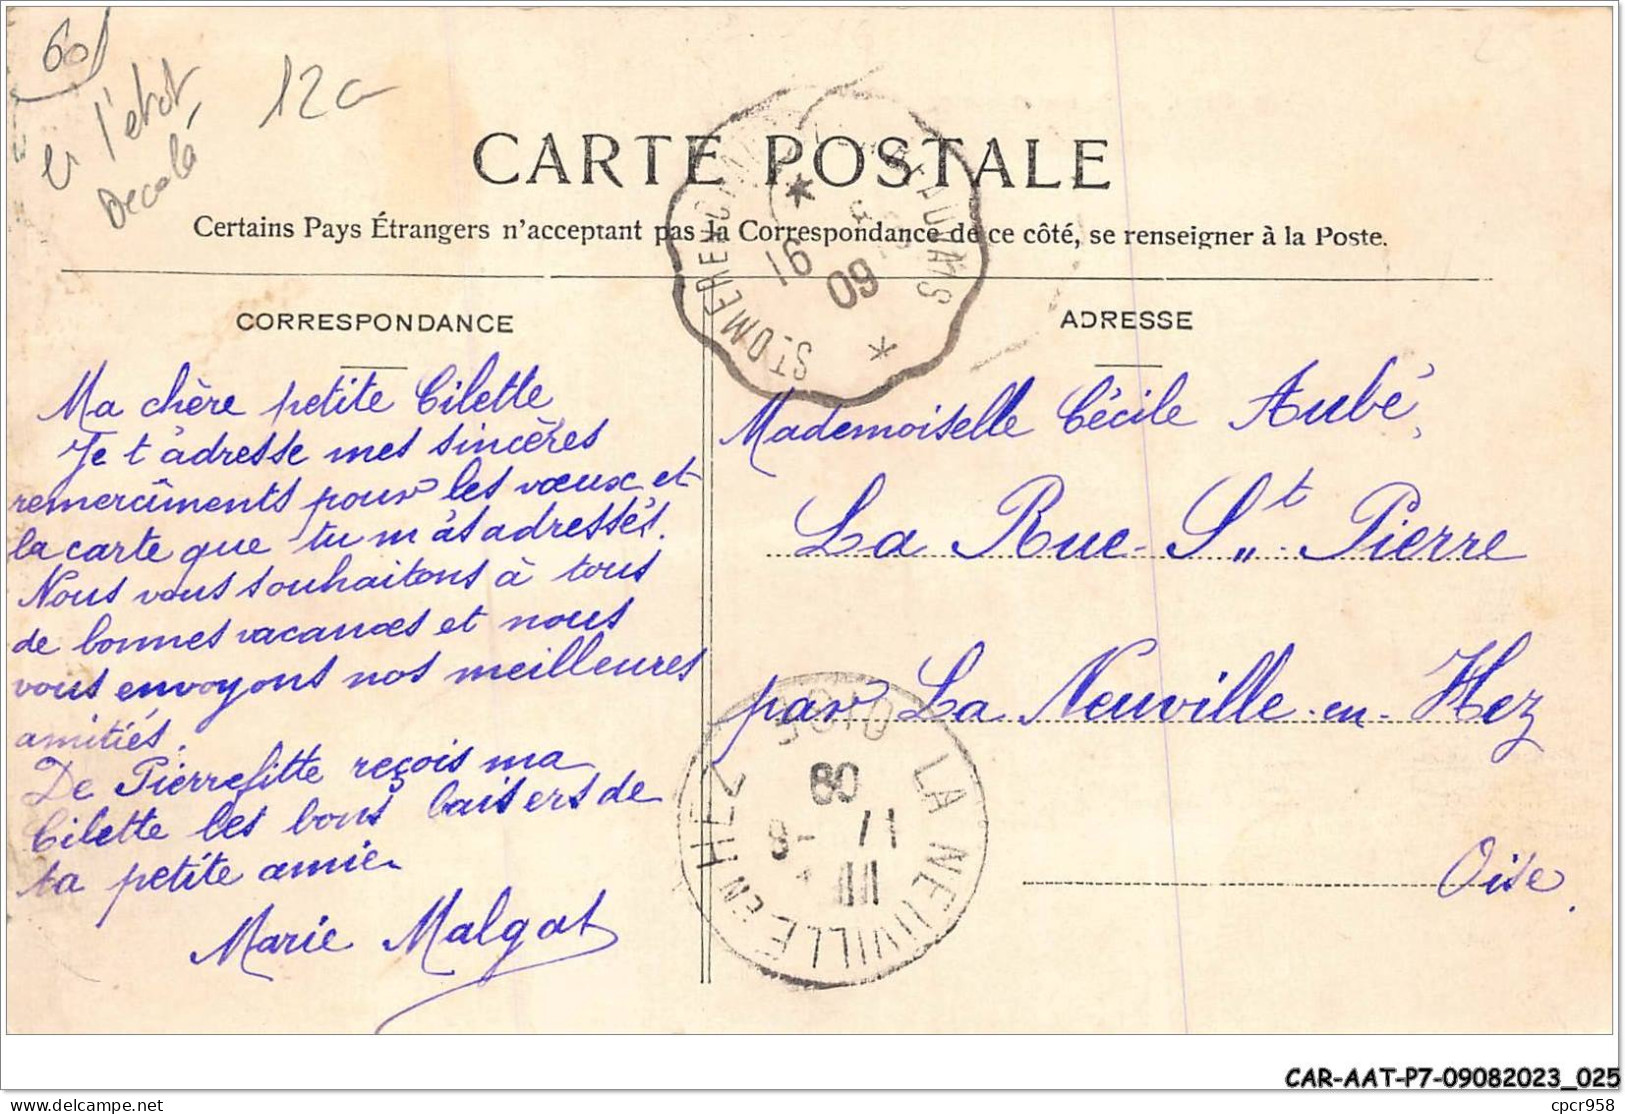 60
en l'état
Decollé
12c
CARTE POSTALE
Certains Pays Étrangers n'acceptant pas la Correspondance de ce côté, se renseigner à la Poste.
16
09
CORRESPONDANCE
Ma chère petite Cilette
Je t'adresse mes sincères
remercîments pour les vœux et
la carte que tu m'as adressés.
Nous vous souhaitons à tous
de bonnes vacances et nous
vous envoyons nos meilleures
amitiés.
De Pierrefitte reçois ma
Cilette les bons baisers de
ta petite amie
Marie Malgat
ADRESSE
Mademoiselle Cécile Aubé,
La Rue-St-Pierre
par La Neuville-en-Hez
Oise.
LA NEUVILLE EN HEZ
OISE
CAR-AAT-P7-09082023_025
delcampe.net
cpcr958